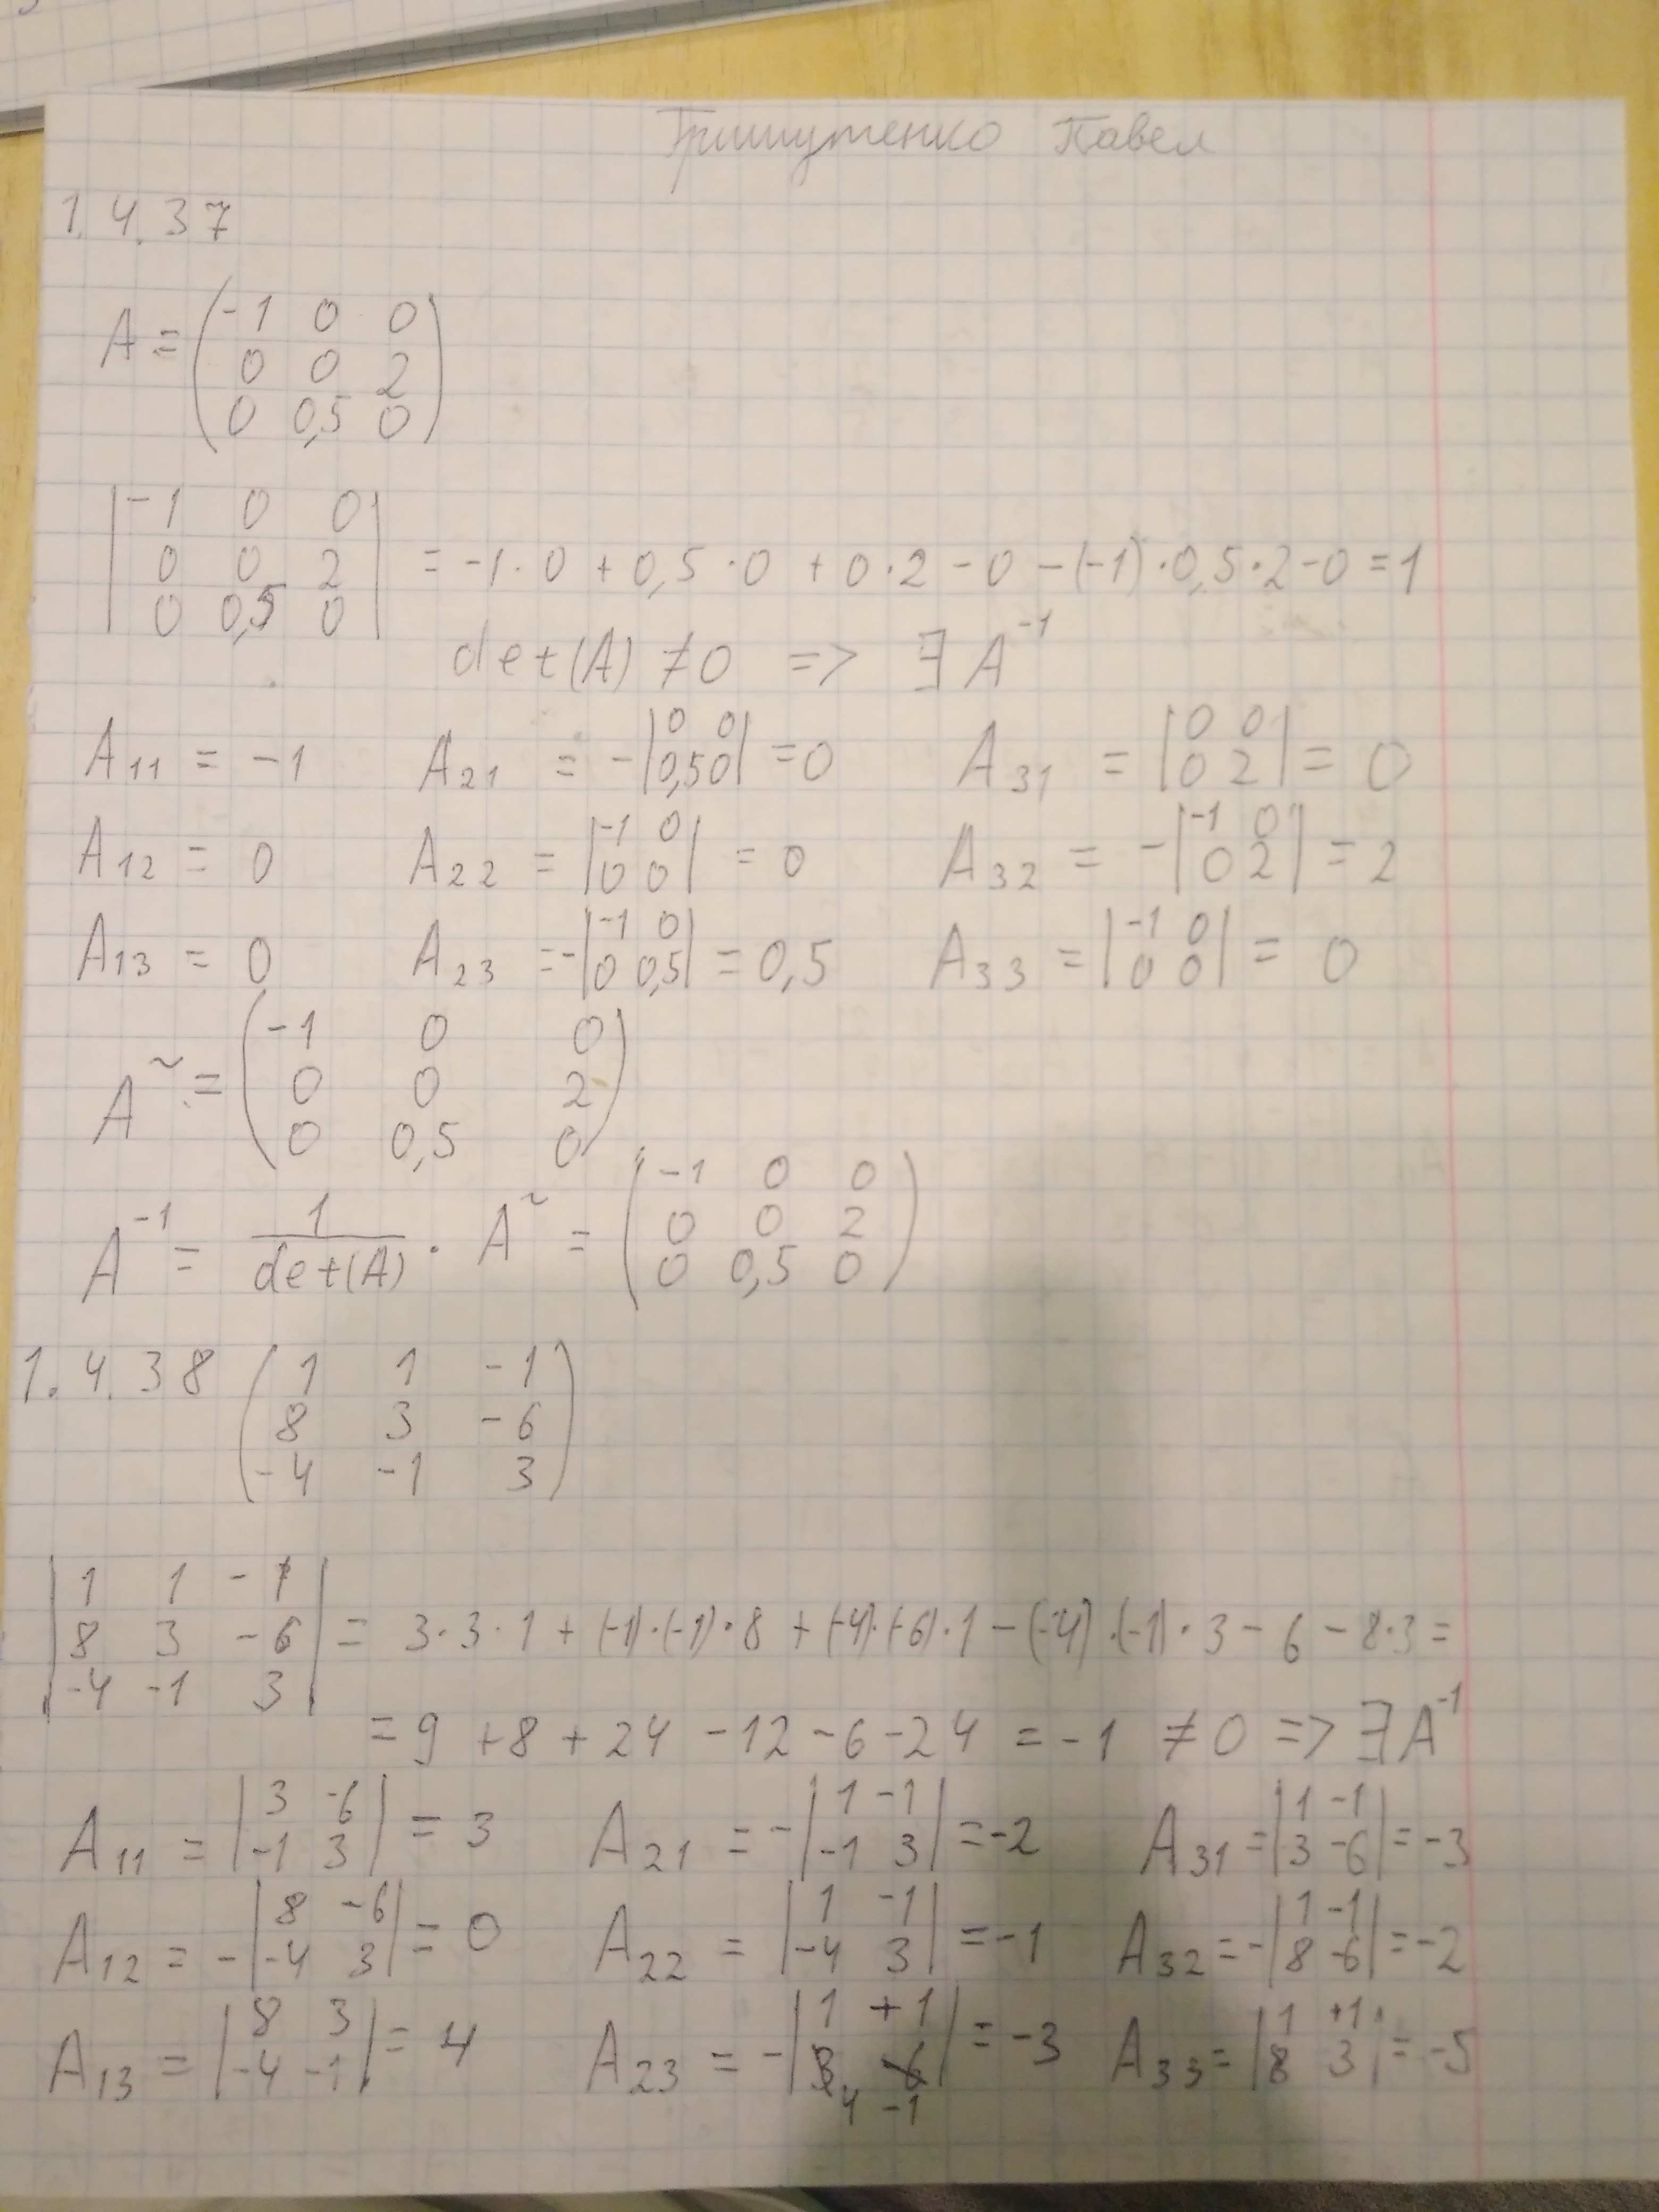 Гришутенко Павел
1.4.37
A = (-1 0 0
0 0 2
0 0,5 0)
|-1 0 0
0 0 2
0 0,5 0| = -1·0 + 0,5·0 + 0·2 - 0 - (-1)·0,5·2 - 0 = 1
det(A) ≠ 0 => ∃ A^-1
A11 = -1 A21 = -|0 0; 0,5 0| = 0 A31 = |0 0; 0 2| = 0
A12 = 0 A22 = |-1 0; 0 0| = 0 A32 = -|-1 0; 0 2| = 2
A13 = 0 A23 = -|-1 0; 0 0,5| = 0,5 A33 = |-1 0; 0 0| = 0
A~ = (-1 0 0
0 0 2
0 0,5 0)
A^-1 = 1/det(A) · A~ = (-1 0 0
0 0 2
0 0,5 0)
1.4.38 (1 1 -1
8 3 -6
-4 -1 3)
|1 1 -1
8 3 -6
-4 -1 3| = 3·3·1 + (-1)·(-1)·8 + (-4)·(-6)·1 - (-4)·(-1)·3 - 6 - 8·3 =
= 9 + 8 + 24 - 12 - 6 - 24 = -1 ≠ 0 => ∃ A^-1
A11 = |3 -6; -1 3| = 3 A21 = -|1 -1; -1 3| = -2 A31 = |1 -1; 3 -6| = -3
A12 = -|8 -6; -4 3| = 0 A22 = |1 -1; -4 3| = -1 A32 = -|1 -1; 8 -6| = -2
A13 = |8 3; -4 -1| = 4 A23 = -|1 +1; 4 -1| = -3 A33 = |1 +1; 8 3| = -5